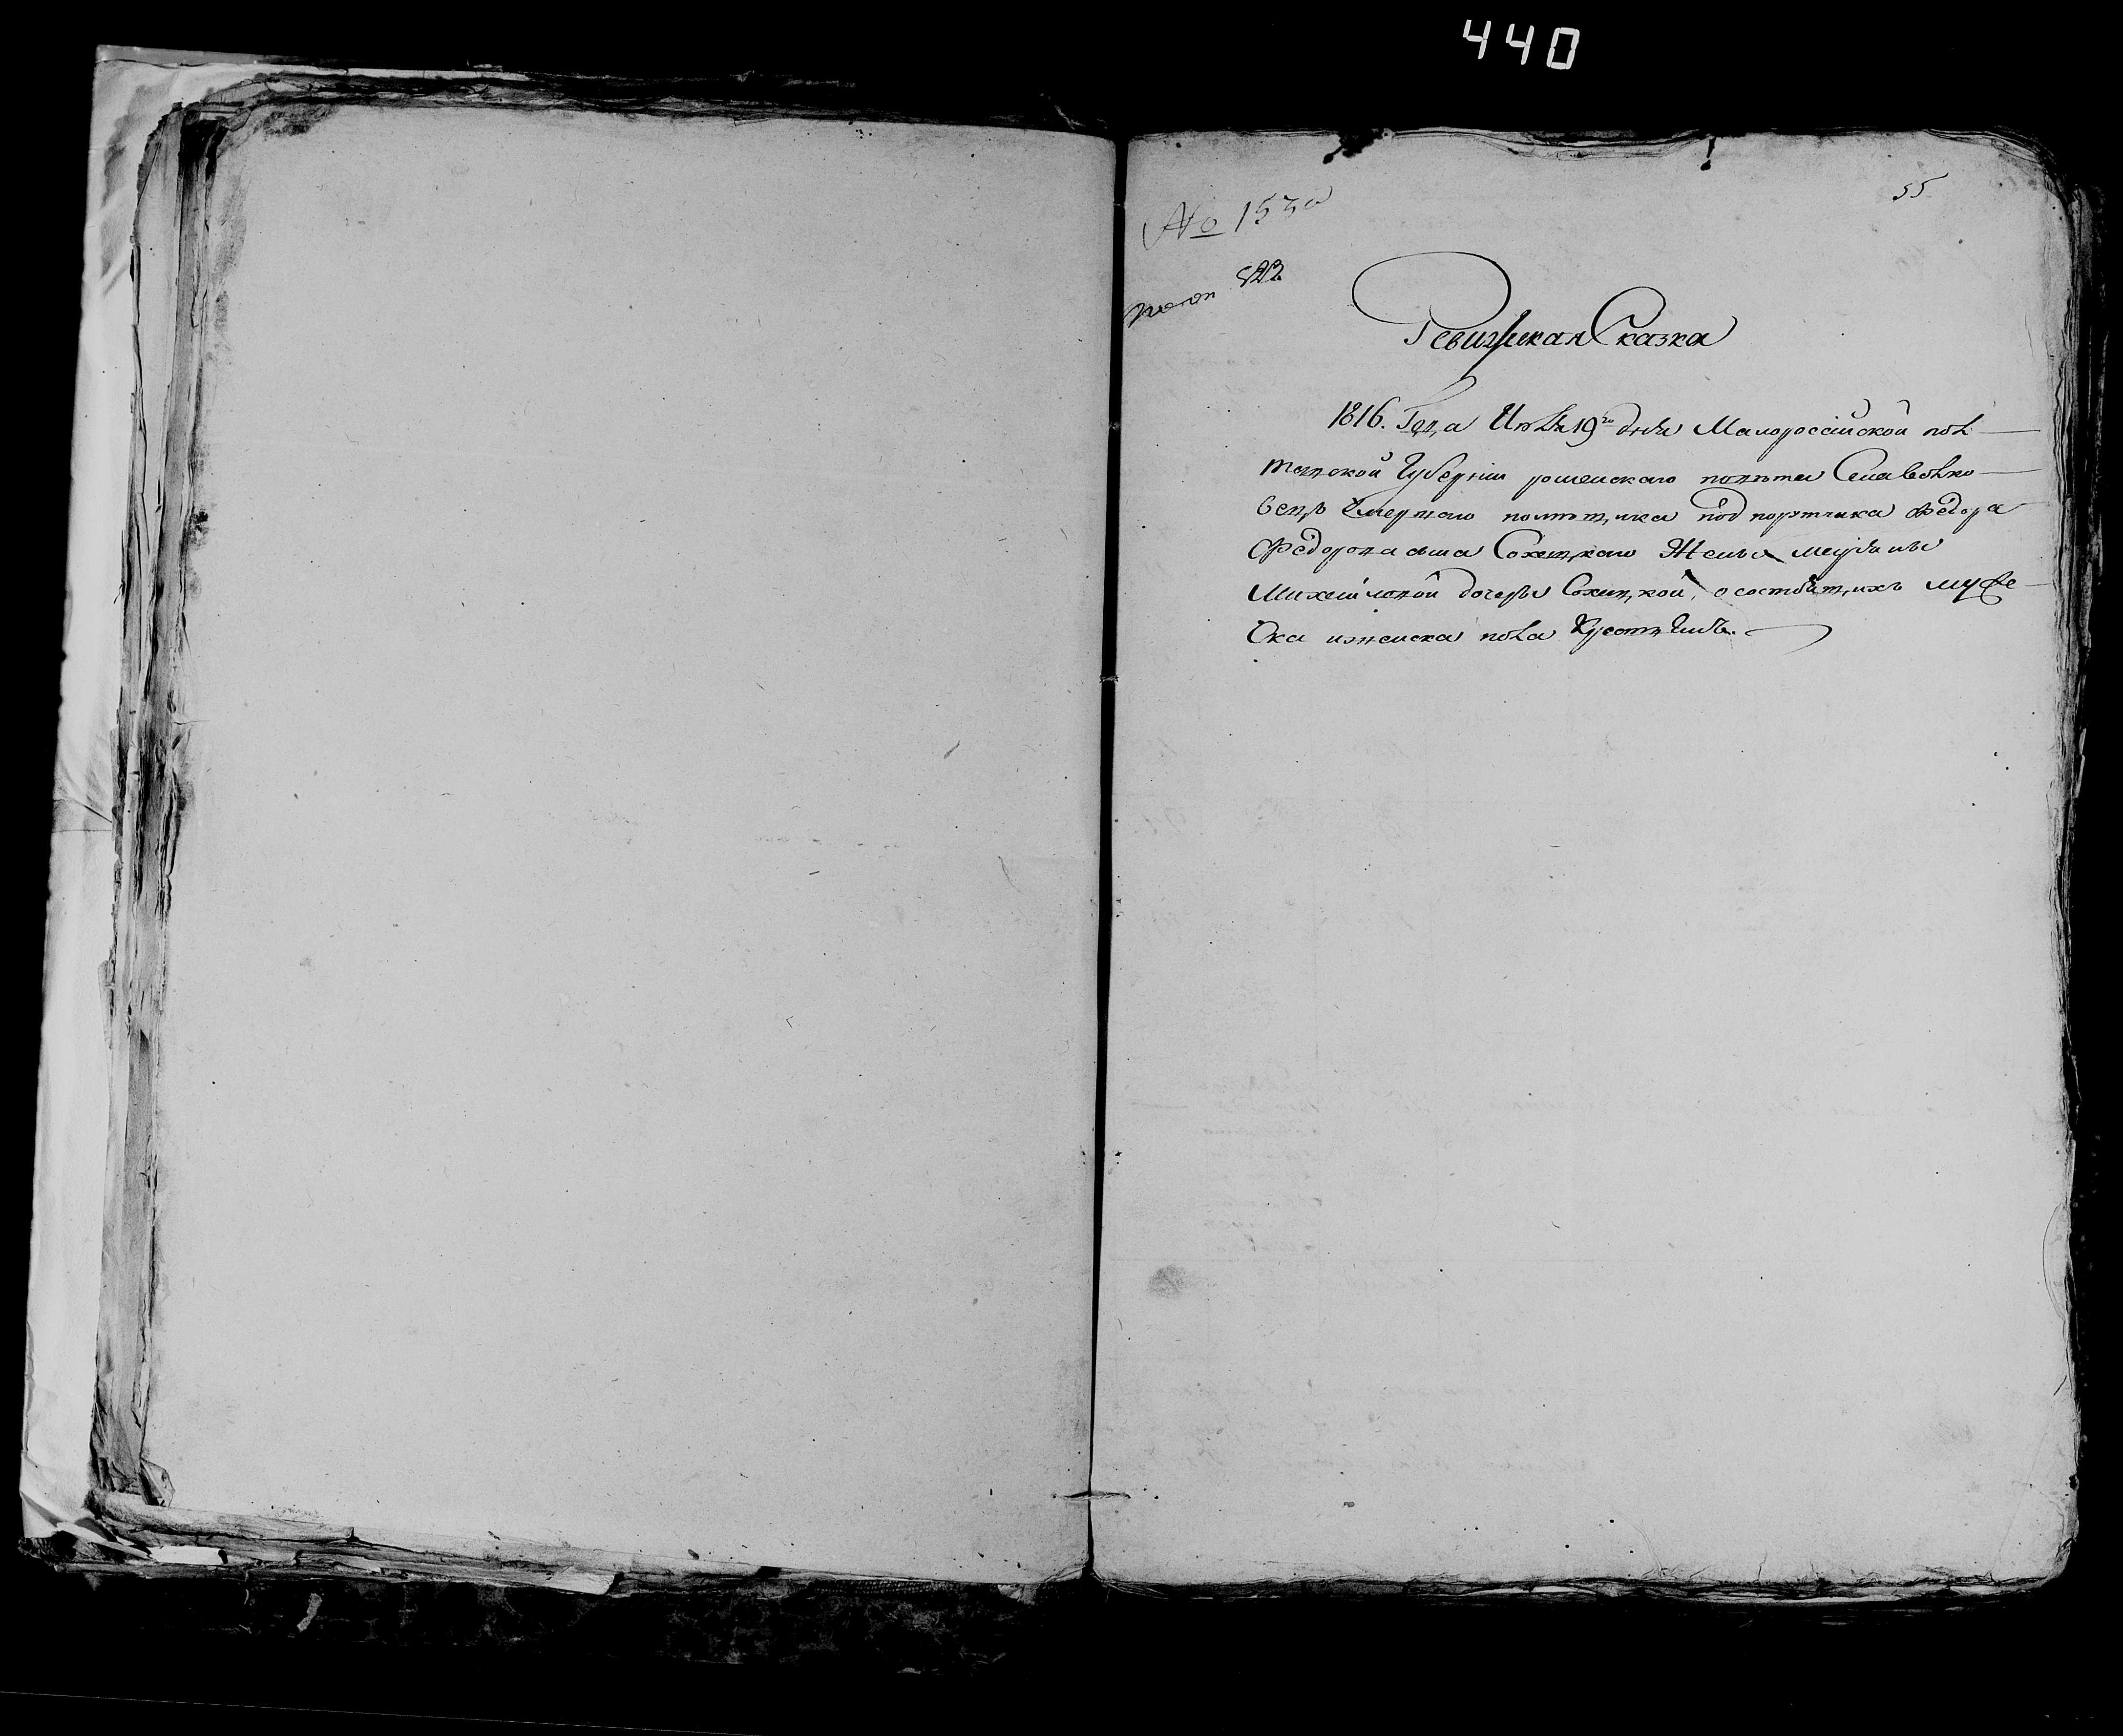 440
55
№ 1530
Ревижская Сказка
1816. Года Июля 19го дня Малороссійской пол
тавской Губерніи роменскаго повета Села волко
вецъ Умершаго подпорутчика Федора
Федорова сына Сохацкаго Жены
Михайловой дочеры Сохацкой, о состоящихъ муже
ска и женска пола Крестянехъ.